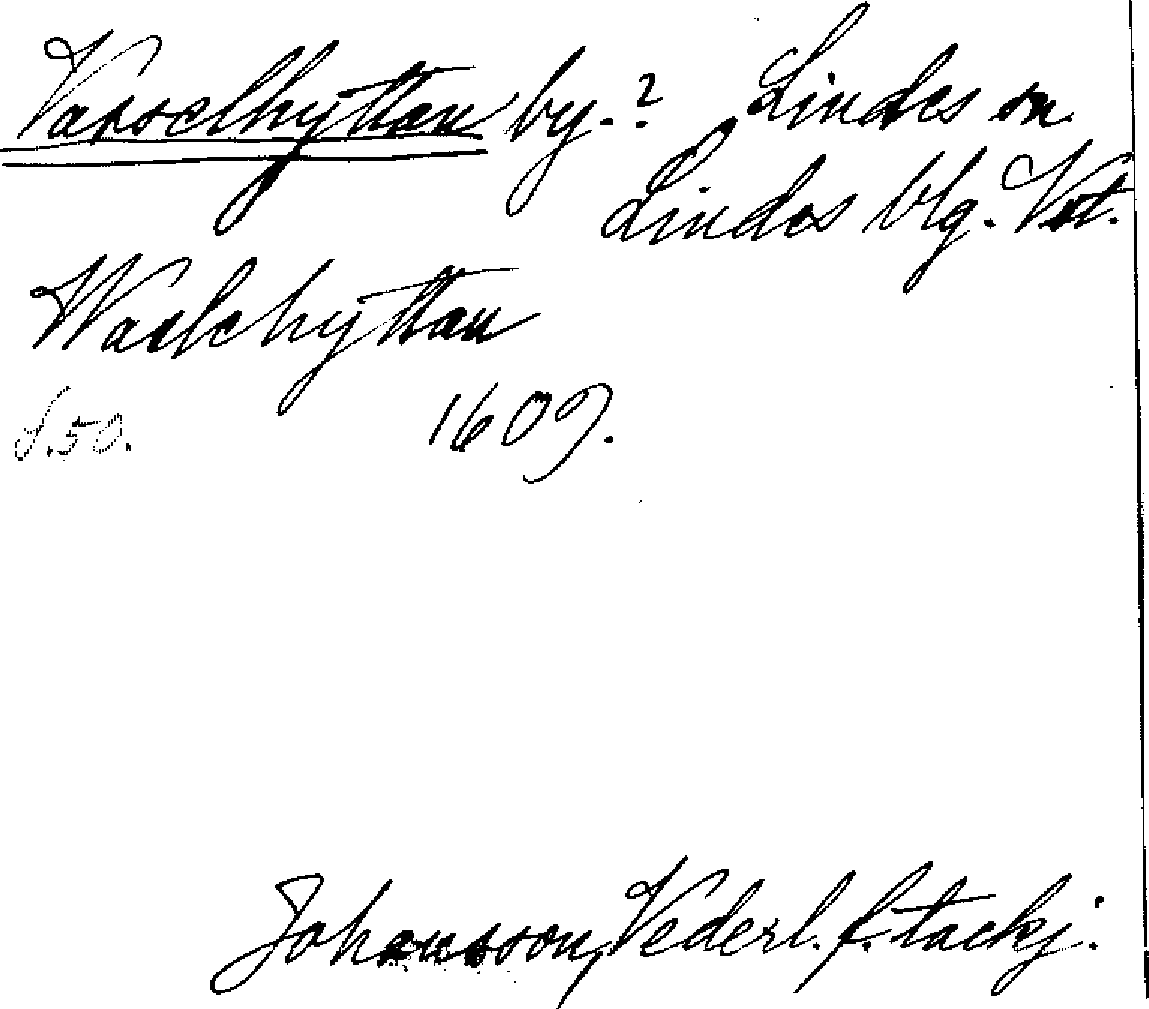 Vasselhyttan by.? Lindes sn
Lindes blg. Vst.
Waslehyttan
S.50. 1609.
Johansson, Vederl. f. tackj.